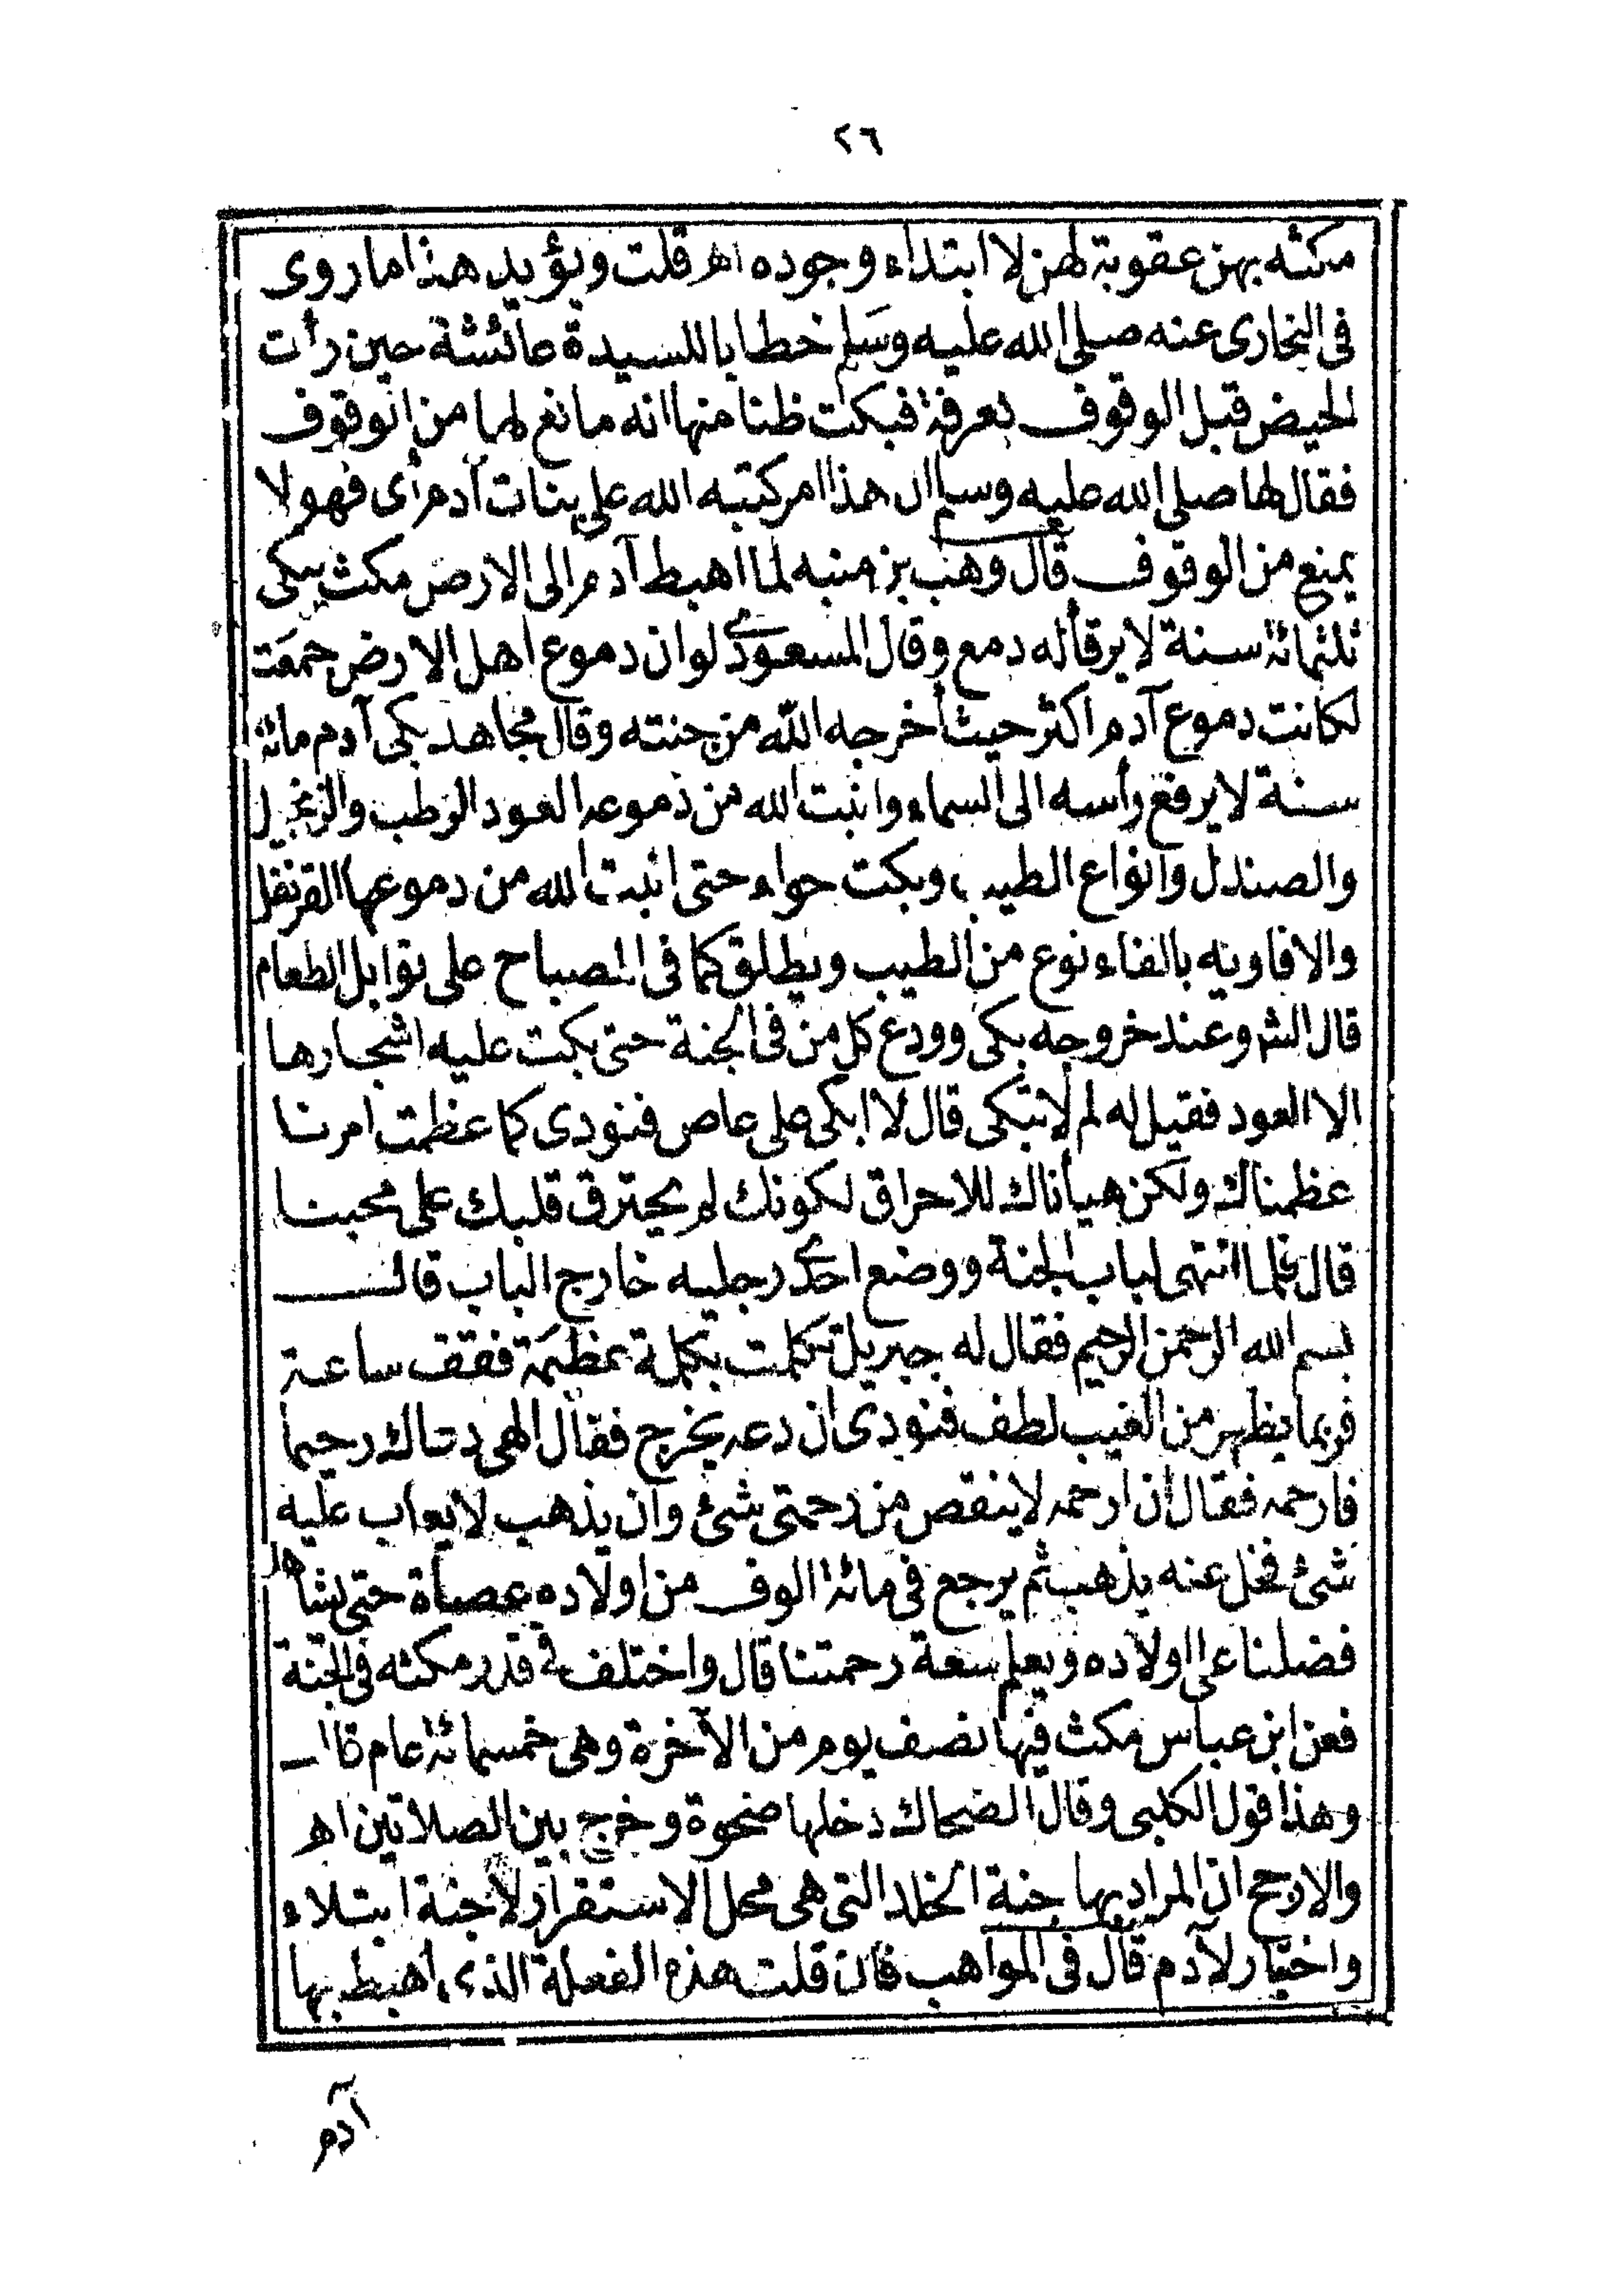 ٢٦
مكثه بهن عقوبة لهن لا ابتداء وجوده اهـ قلت ويؤيد هذا ما روى
فى البخارى عنه صلى الله عليه وسَلم خطابا للسيدة عائشة حين رأت
الحيض قبل الوقوف بعرفة فبكت ظنا منها انه مانع لها من الوقوف
فقال لها صلى الله عليه وسلم ان هذا امر كتبه الله على بنات آدم أى فهو لا
يمنع من الوقوف قال وهب بن منبه لما اهبط آدم الى الارض مكث يبكى
ثلثمائة سنة لا يرقأ له دمع وقال المسعودى لو ان دموع اهل الارض جمعت
لكانت دموع آدم اكثر حيث أخرجه الله من جنته وقال مجاهد بكى آدم مائة
سنة لا يرفع رأسه الى السماء وانبت الله من دموعه العود الرطب والزنجبيل
والصندل وانواع الطيب وبكت حواء حتى انبت الله من دموعها القرنفل
والافاويه بالفاء نوع من الطيب ويطلق كما فى المصباح على توابل الطعام
قال الشم وعند خروجه بكى وودع كل من فى الجنة حتى بكت عليه اشجارها
الا العود فقيل له لم لا تبكى قال لا ابكى على عاص فنودى كما عظمت امرنا
عظمناك ولكن هيأناك للاحراق لكونك لم يحترق قلبك على محبنا
قال فلما انتهى لباب الجنة ووضع احدى رجليه خارج الباب قال
بسم الله الرحمن الرحيم فقال له جبريل تكلمت بكلمة عظيمَة فقف ساعة
فربما يظهر من الغيب لطف فنودى ان دعه يخرج فقال الهى دعاك رحيما
فارحمه فقال ان ارحمه لا ينقص من رحمتى شئ وان يذهب لا يعاب عليه
شئ فخل عنه يذهب ثم يرجع فى مائة الوف من اولاده عصاة حتى يشاهد
فضلنا على اولاده ويعلم سعة رحمتنا قال واختلف فى قدر مكثه فى الجنة
فعن ابن عباس مكث فيها نصف يوم من الآخرة وهى خمسمائة عام قال
وهذا قول الكلبى وقال الضحاك دخلها ضحوة وخرج بين الصلاتين اهـ
والارجح ان المراد بها جنة الخلد التى هى محل الاستقرار لا جنة ابتلاء
واختبار لآدم قال فى المواهب فان قلت هذه الفعلة الذى اهبط بها
آدم